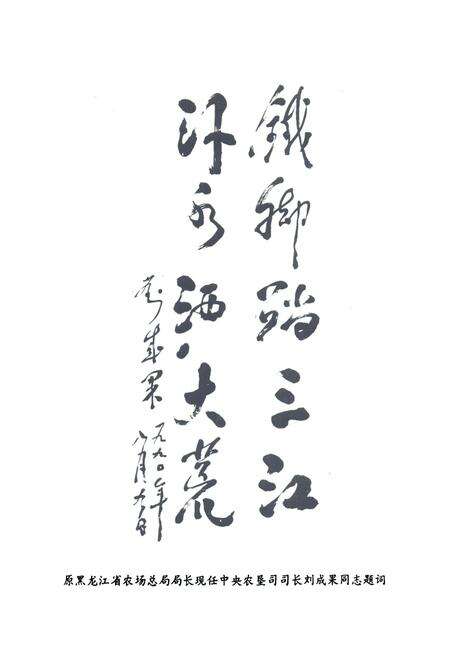 鐵脚踏三江
汗水洒大荒
劉成果
一九九〇年
八月九日
原黑龙江省农场总局局长现任中央农垦司司长刘成果同志题词